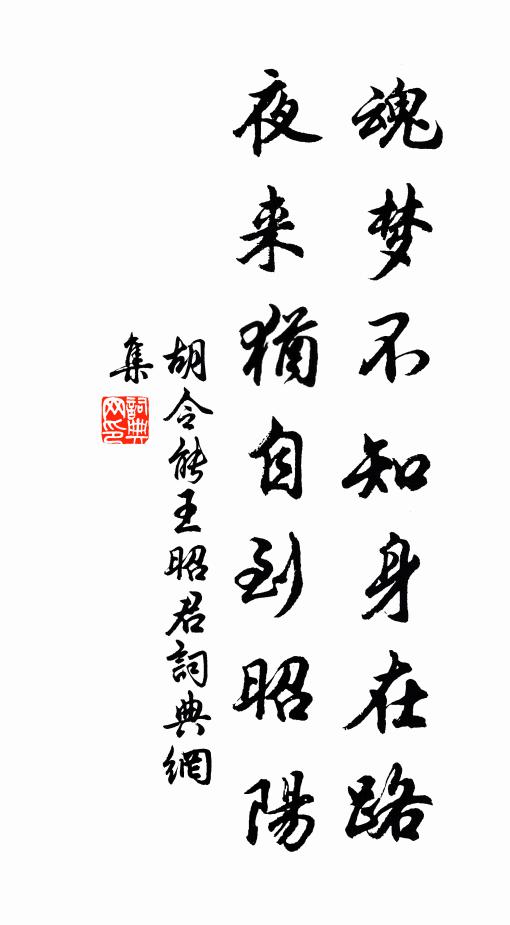 魂梦不知身在路
夜来犹自到昭陽
胡令能王昭君詞典網
集
詞典
网印